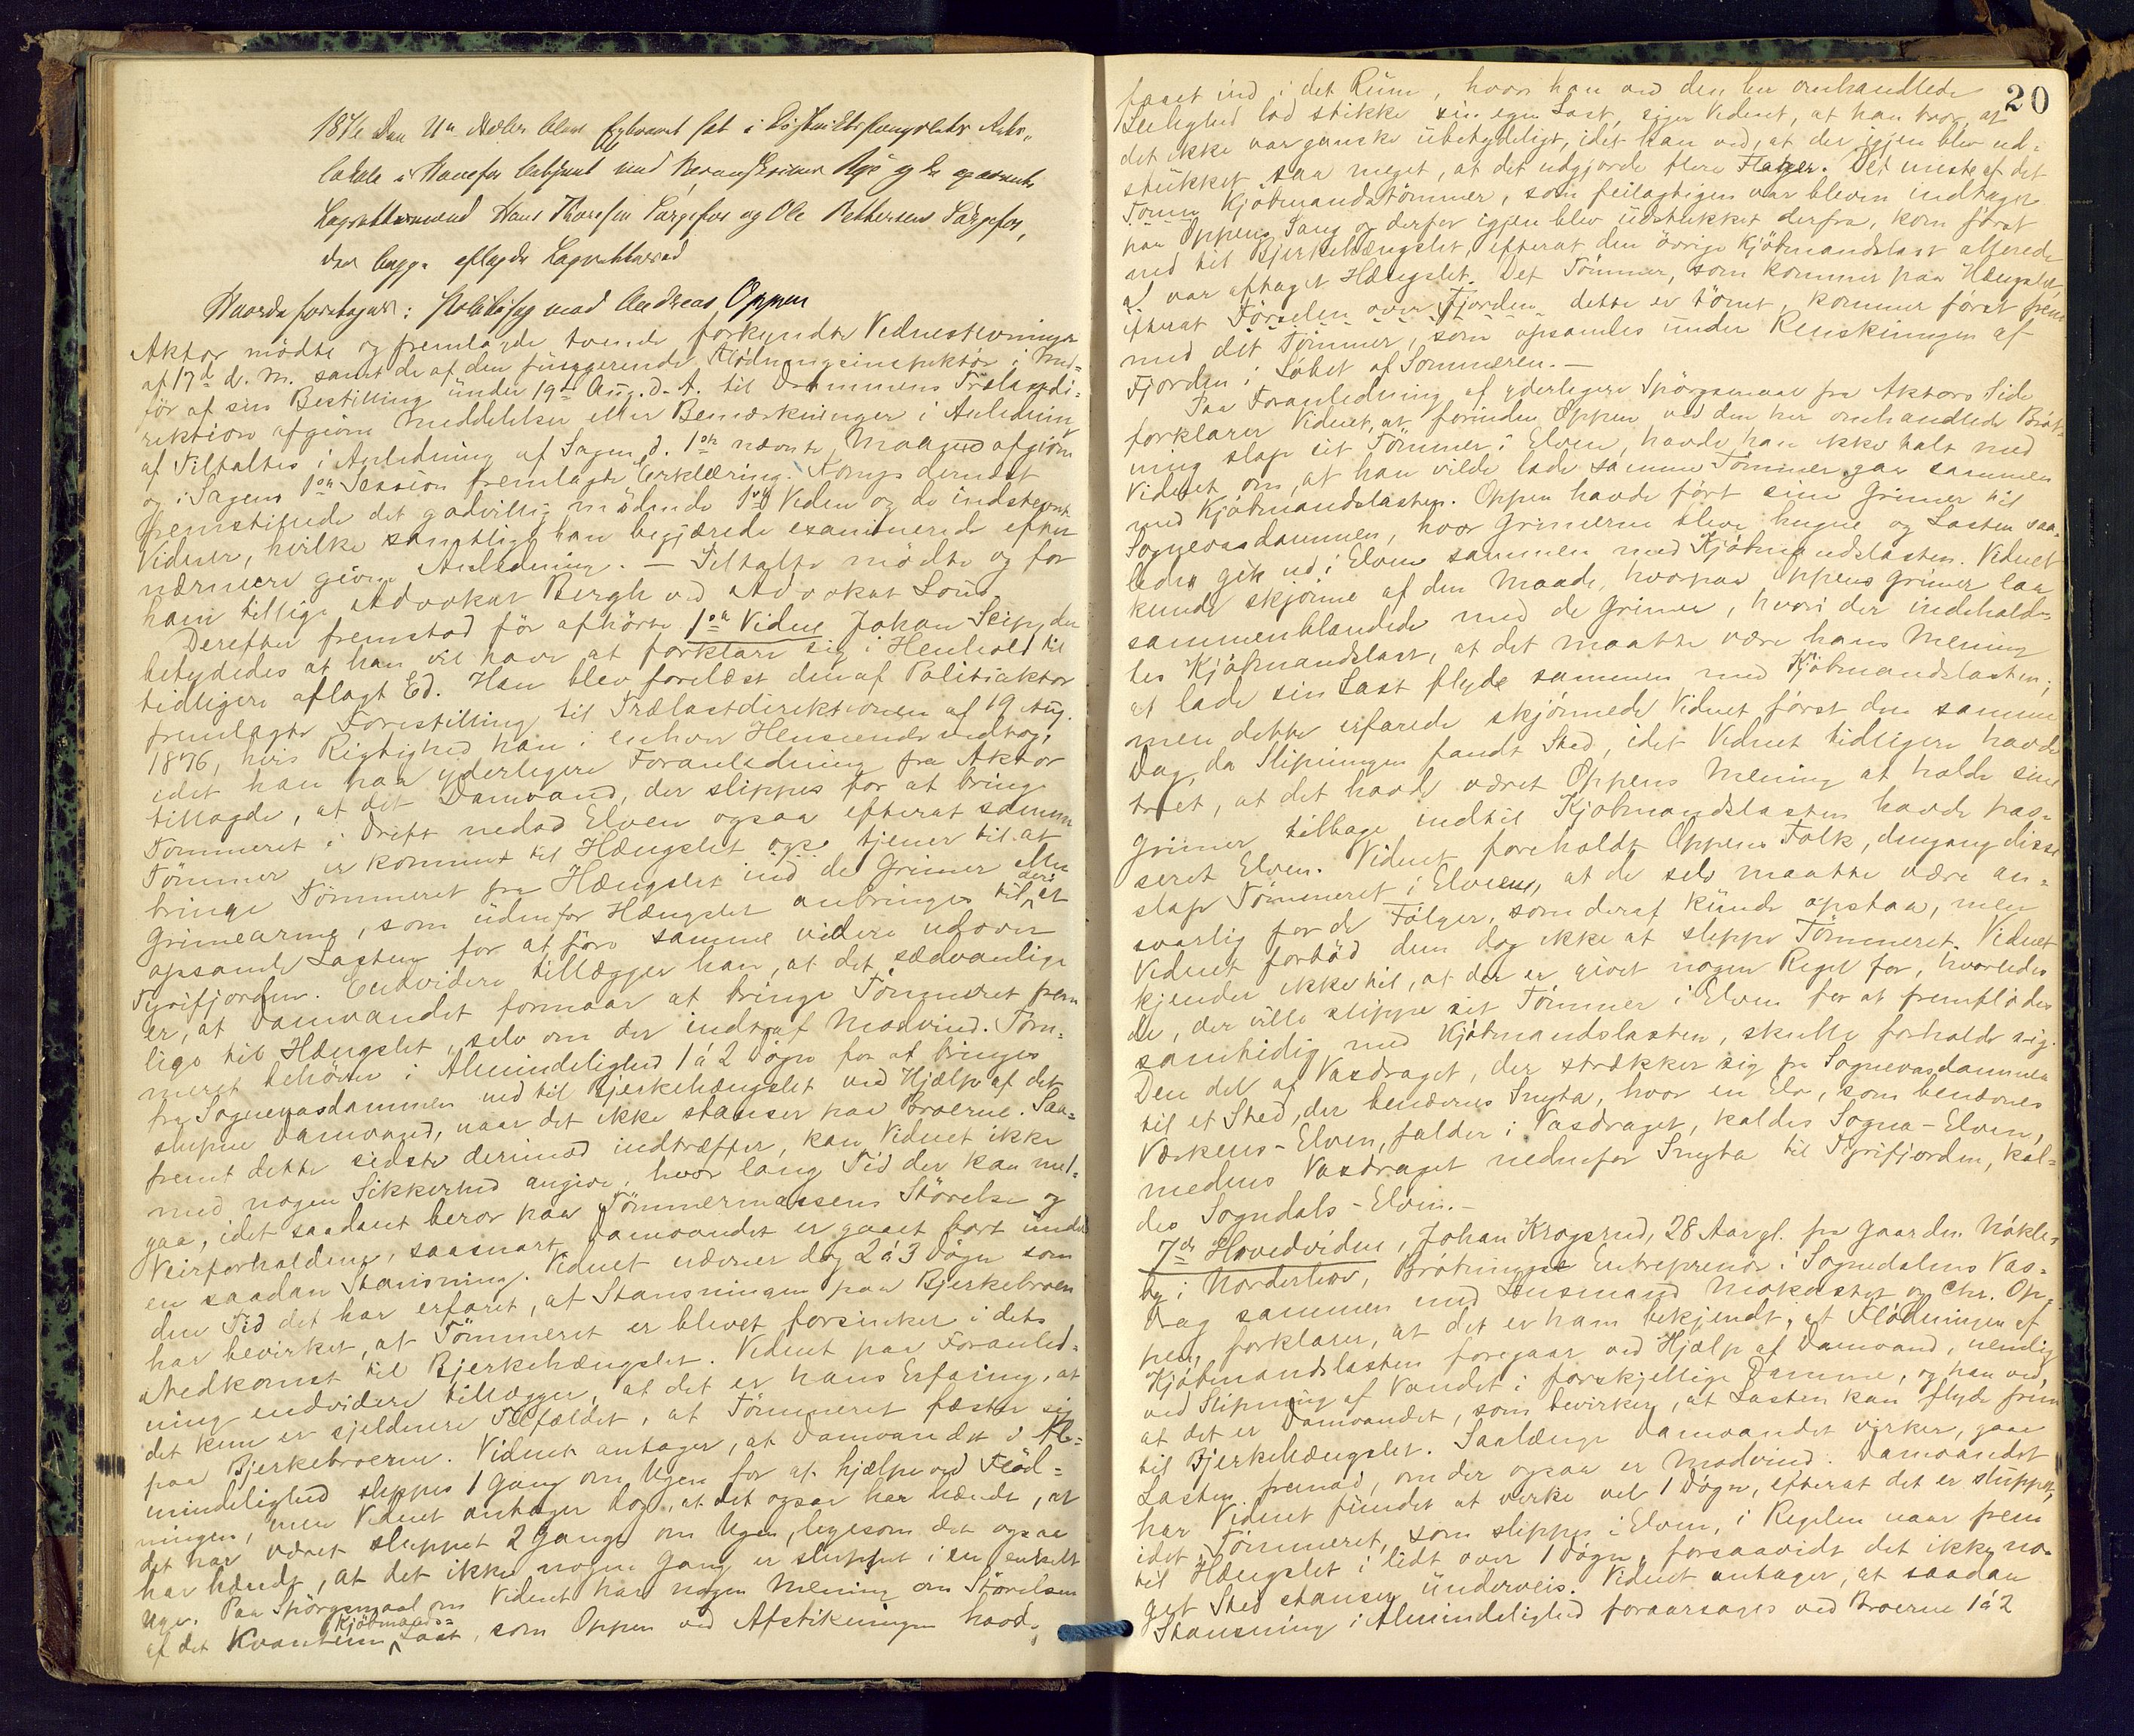 1876 den 4de blev Extraret sat i Distriktsfængslets Rets-
lokale i Hønefos betjent med og de opnævnte
Lagrettesmænd Hans Thoresen Sørgefos og Ole Pettersen Sørgefos,
der begge aflagde Lagretteseed
Hvorda foretages: Politisag mod Andreas Oppen
Aktor mødte og fremlagde tvende forkyndte Vidnestevninger
af 17d d. M. samt de af den fungerende Flødningsinspektør i Med-
før af sin Bestilling under 19de Aug. d. A. til Drammens Trælastdi-
rektion afgivne Meddelelser eller Bemærkninger i Anledning
af Tiltaltes i Anledning af Sagen d. 1ste nævnte Maaned afgivne
og i Sagens 1ste Session fremlagte Erklæring. Navnlig dernæst
fremstillede det godvillig mødende 1ste Vidne og de indstevnte
Vidner, hvilke samtlige han begjærede examinerede efter
nærmere given Anledning. – Tiltalte mødte og for
ham tillige Advokat Bergh ved Advokat Lous
Derefter fremstod før afhørte 1ste Vidne Johan Seip, der
betydedes at han vil have at forklare sig i Henhold til
tidligere aflagt Ed. Han blev forelæst den af Politiaktor
fremlagte Forestilling til Trælastdirektionen af 19 Aug.
1876, hvis Rigtighed han i enhver Henseende vedtog,
idet han paa yderligere Foranledning fra Aktor
tillagde, at det Damvand, der slippes for at bringe
Tømmeret i Drift nedad Elven ogsaa efterat samme
Tømmer er kommet til Hængslet ogs tjener til at
bringe Tømmeret fra Hængslet ind i de Grimer eller
Grimearme, som udenfor Hængslet anbringes til der at
opsamle Lasten for at føre samme videre udover
Tyrifjorden. Endvidere tillægger han, at det sædvanlige
er, at Damvandet formaar at bringe Tømmeret frem
lige til Hængslet, selv om der indtraf Modvind. Tøm-
meret behøver i Almindelighed 1 à 2 Døgn for at bringes
fra Sognevasdammen ned til Bjerkehængslet ved Hjælp af det
slupne Damvand, naar det ikke stanser paa Broerne. Saa-
fremt dette sidste derimod indtræffer, kan Vidnet ikke
med nogen Sikkerhed angive, hvor lang Tid der kan med-
gaa, idet saadant beror paa Tømmermassens Størrelse og
Veirforholdene, saasnart Damvandet er gaaet bort under
en saadan Stansning. Vidnet nævner dog 2 à 3 Døgn som
den Tid det har erfaret, at Stansningen paa Bjerkebroen
har bevirket, at Tømmeret er blevet forsinket i dets
Nedkomst til Bjerkehængslet. Vidnet paa Foranled-
ning endvidere tillægger, at det er hans Erfaring, at
det kun er sjeldnere Tilfældet, at Tømmeret fæster sig
paa Bjerkebroerne. Vidnet antager, at Damvandet i Al-
mindelighed slippes 1 Gang om Ugen for at hjælpe ved Flød-
ningen, men Vidnet antager dog, at det ogsaa har hændt, at
det har været sluppet 2 Gange om Ugen, ligesom det ogsaa
har hændt, at det ikke nogen Gang er sluppet i en enkelt
Uge. Paa Spørgsmaal om Vidnet har nogen Mening om Størrelsen
af det Kvantum Kjøbmands-Last, som Oppen ved Afstikningen havde
20
faaet ind i det Rum, hvori han ved den her omhandlede
Leilighed lod stikke sin egen Last, siger Vidnet, at han tror at
det ikke var ganske ubetydeligt, idet han ved, at der igjen blev ud-
stukket saa meget, at det udgjorde flere Flager. Det meste af det
Tømm Kjøbmandstømmer, som feilagtigen var bleven indtaget
paa Oppens Sang og derfor igjen blev udstukket derfra, kom først
ned til Bjerkehængslet, efterat den øvrige Kjøbmandslast allerede
af var aftaget Hængslet. Det Tømmer, som kommer paa Hængslet,
efterat Førselen over Fjorden dette er tømt, kommer først frem
med det Tømmer, som opsamles under Renskningen af
Fjorden i Løbet af Sommeren. –
Paa Foranledning af yderligere Spørgsmaal fra Aktors Side
forklarer Vidnet, at forinden Oppen ved den her omhandlede Brøt-
ning slap sit Tømmer i Elven, havde han ikke talt med
Vidnet om, at han vilde lade samme Tømmer gaa sammen
med Kjøbmandslasten. Oppen havde ført sine Grimer til
Sognevasdammen, hvor Grimerne bleve hugne og Lasten saa-
ledes gik ud i Elven sammen med Kjøbmandslasten. Vidnet
kunde skjønne af den Maade, hvorpaa Oppens Grimer laa
sammenblandede med de Grimer, hvori der indeholdt-
tes Kjøbmandslast, at det maatte være hans Mening
at lade sin Last flyde sammen med Kjøbmandslasten;
men dette erfarede skjønnede Vidnet først den samme
Dag, da Slipningen fandt Sted, idet Vidnet tidligere havde
troet, at det havde været Oppens Mening at holde sine
Grimer tilbage indtil Kjøbmandslasten havde pas-
seret Elven. Vidnet foreholdt Oppens Folk, dengang disse
slap Tømmeret i Elven, at de selv maatte være an-
svarlig for de Følger, som deraf kunde opstaa, men
Vidnet forbød dem dog ikke at slippe Tømmeret. Vidnet
kjender ikke til, at der er givet nogen Regel for, hvorledes
de, der ville slippe sit Tømmer i Elven for at fremflødes
samtidig med Kjøbmandslasten, skulle forholde sig.
Den del af Vasdraget, der strækker sig fra Sognevasdammen
til et Sted, der benævnes Snyta, hvor en Elv, som benævnes
Væskens-Elven, falder i Vasdraget, kaldes Sogna-Elven,
medens Vasdraget nedenfor Snyta til Tyrifjorden, kal-
des Sogndals-Elven. –
7de Hovedvidne, Johan Krogsrud, 28 Aar gl. fra Gaarden Nøkle-
by i Norderhov, Brøtnings Entreprenør i Sognedalens Vas-
drag sammen med Lensmand Mokastet og Chr. Op-
pen, forklarer, at det er ham bekjendt, at Flødningen af
Kjøbmandslasten foregaar ved Hjælp af Damvand, nemlig
ved Slipning af Vandet i forskjellige Damme, og han ved,
at det er Damvandet, som bevirker, at Lasten kan flyde frem
til Bjerkehængslet. Saalænge Damvandet virker, gaar
Lasten fremad, om der ogsaa er Modvind. Damvandet
har Vidnet fundet at virke vel 1 Døgn, efterat det er sluppet,
idet Tømmeret, som slippes i Elven, i Regelen naar frem
til Hængslet i lidt over 1 Døgn, forsaavidt det ikke no-
get Sted stanser underveis. Vidnet antager, at saadan
Stansning i Almindelighed foraarsages ved Broerne 1 à 2